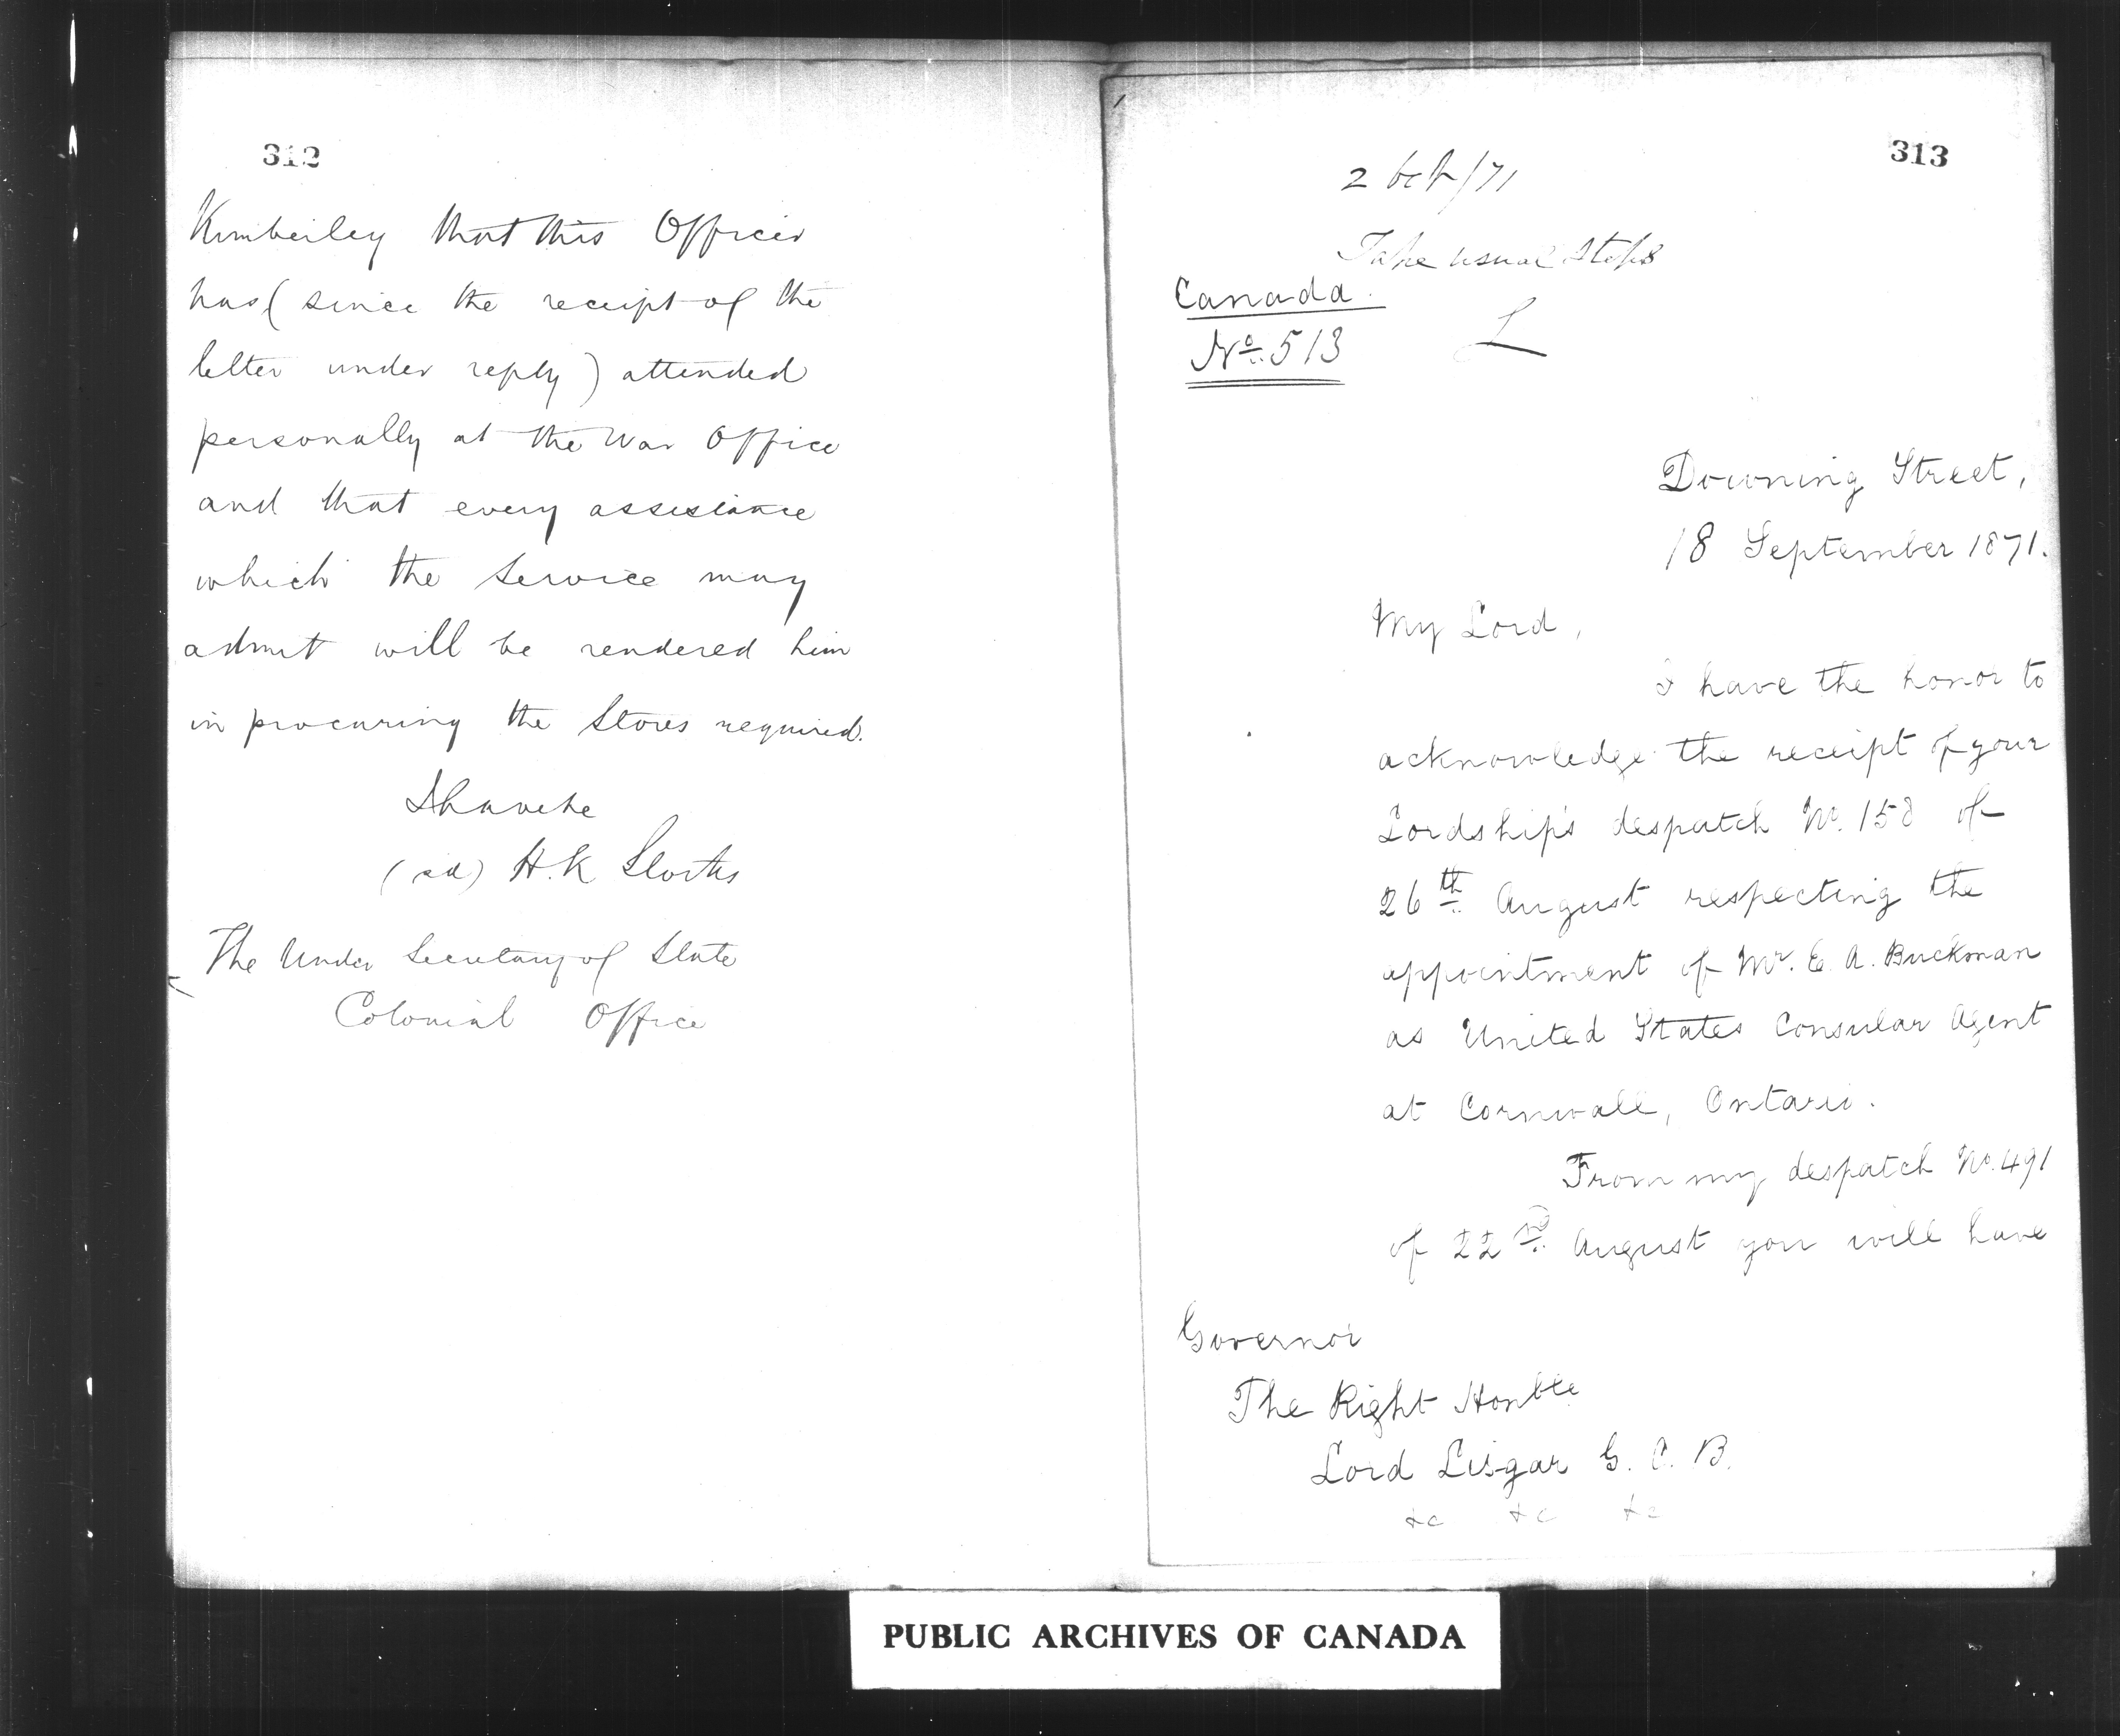 312
Kimberley that this Officer
has (since the receipt of the
letter under reply) attended
personally at the War Office
and that every assistance
which the Service may
admit will be rendered him
in procuring the Stores required.
I have &c
(sd) H. K Storks
The Under Secretary of State
Colonial Office
313
2 Oct/71
Take usual steps
L
Canada.
No. 513
Downing Street,
18 September 1871.
My Lord,
I have the honor to
acknowledge the receipt of your
Lordship's despatch No. 158 of
26th August respecting the
appointment of Mr. E. A. Buckman
as United States Consular Agent
at Cornwall, Ontario.
From my despatch No. 491
of 22nd August you will have
Governor
The Right Honble
Lord Lisgar G. C. B.
&c &c &c
PUBLIC ARCHIVES OF CANADA